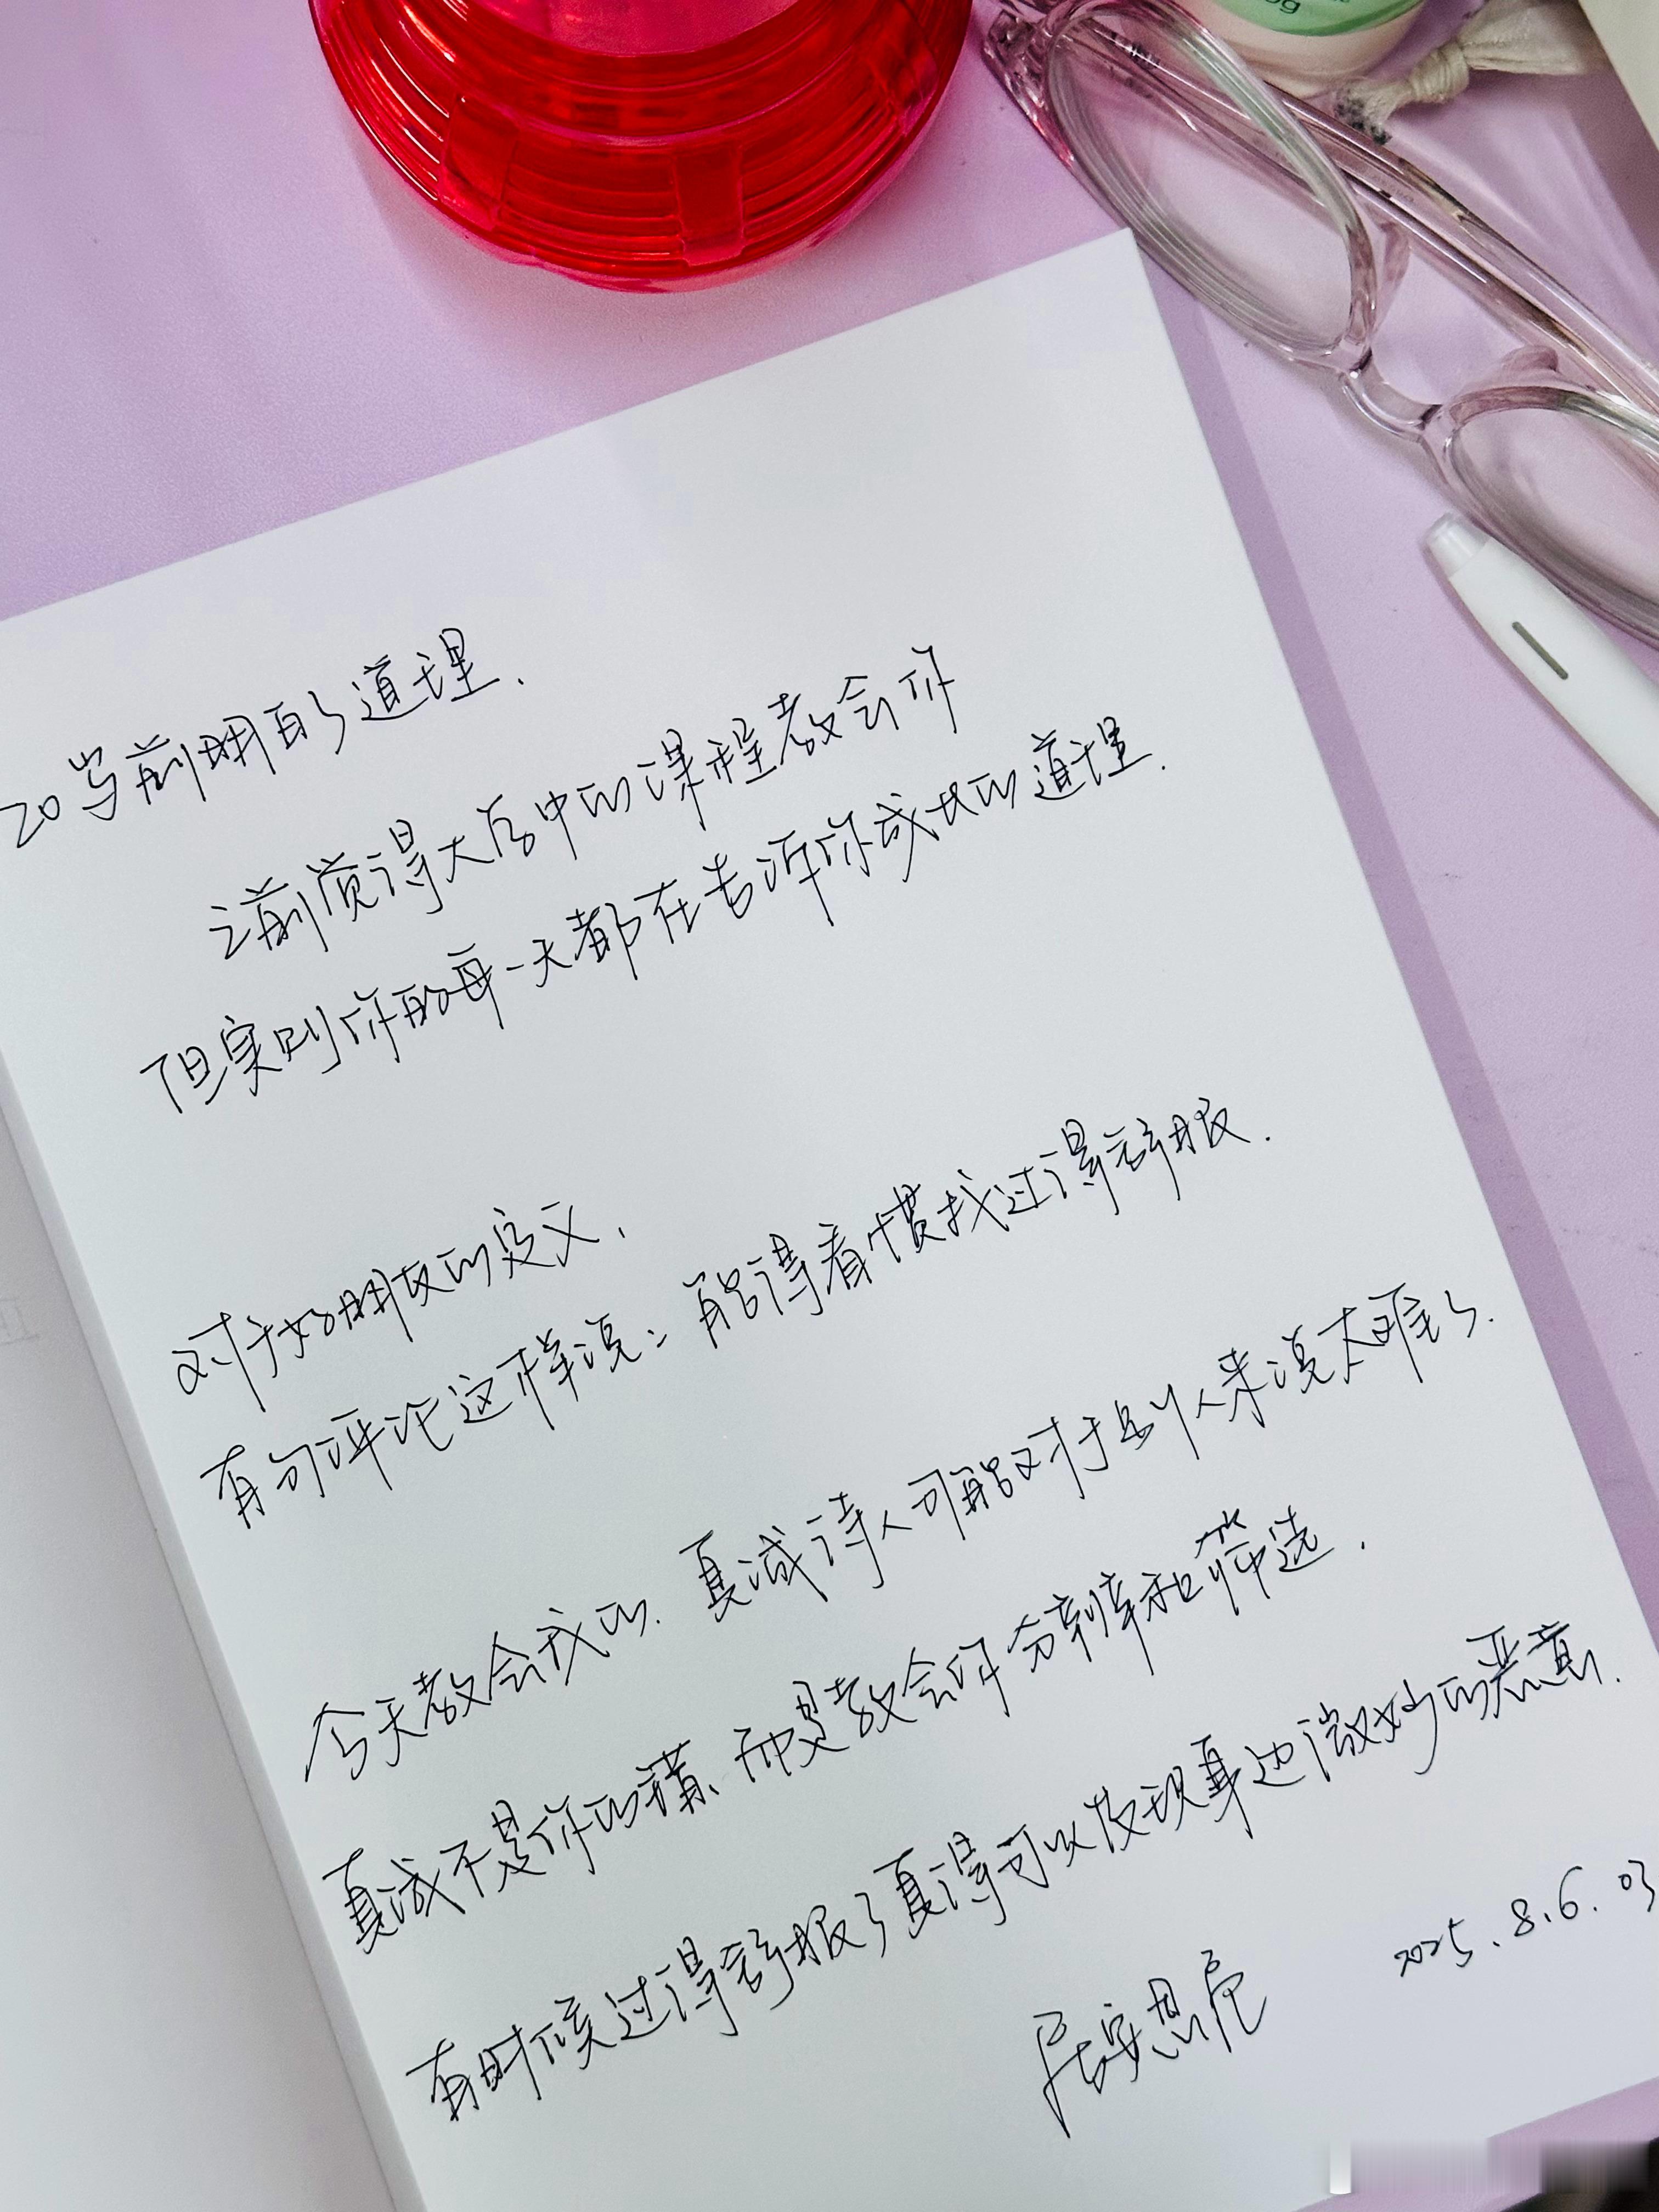 20岁前明白的道理.
之前觉得大学中的课程教会你
但实则你的每一天都在告诉你成长的道理.
对于好朋友的定义、
有句评论这样说：能得着惯找过得舒服.
今天教会我的. 真诚待人可能对于别人来说太难了.
真诚不是你的错、而是教会你分辨和筛选.
有时候过得舒服了真得可以发现身边微妙的恶意.
居安思危
2025.8.6.03